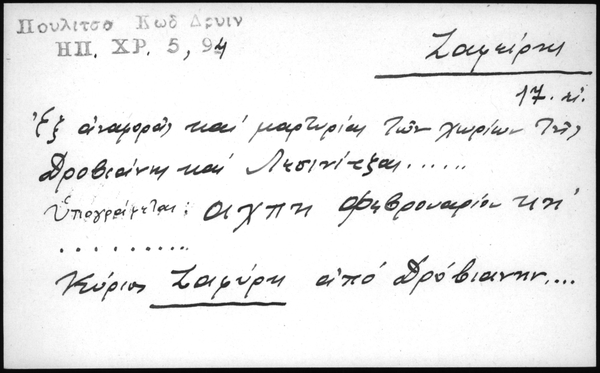 Πουλιτσα Κωδ Δρυιν
ΗΠ. ΧΡ. 5, 94
Ζαφείρης
17. αἰ.
Ἐξ ἀναφορᾶς καί μαρτυρίας τῶν χωρίων τῆς
Δροβιάνης καί Λεσινίτζας......
Ὑπογράφεται: αχπη Φεβρουαρίου κη'
..........
Κύριος Ζαφύρη ἀπό Δρόβιανην....